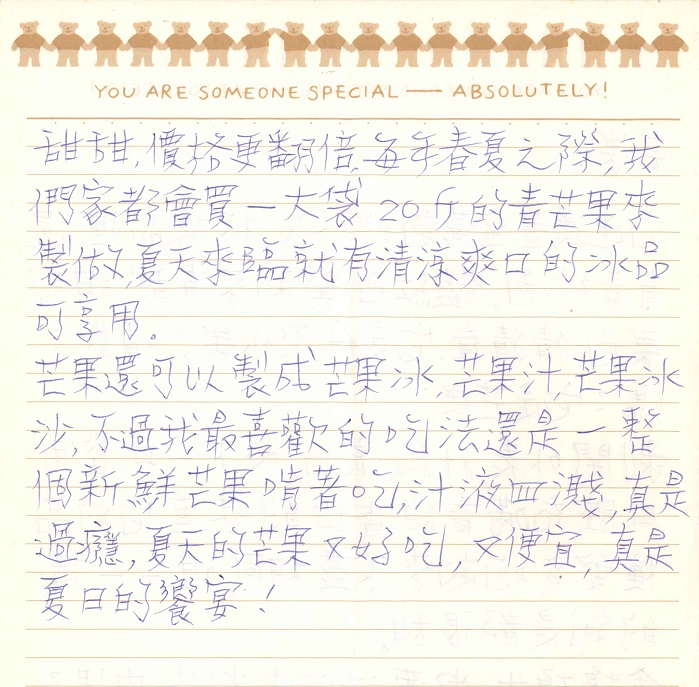 YOU ARE SOMEONE SPECIAL — ABSOLUTELY!
甜甜,價格更翻倍,每年春夏之際,我
們家都會買一大袋20斤的青芒果來
製做,夏天來臨就有清涼爽口的冰品
可享用。
芒果還可以製成芒果冰,芒果汁,芒果冰
沙,不過我最喜歡的吃法還是一整
個新鮮芒果啃著吃,汁液四濺,真是
過癮,夏天的芒果又好吃,又便宜,真是
夏日的饗宴!